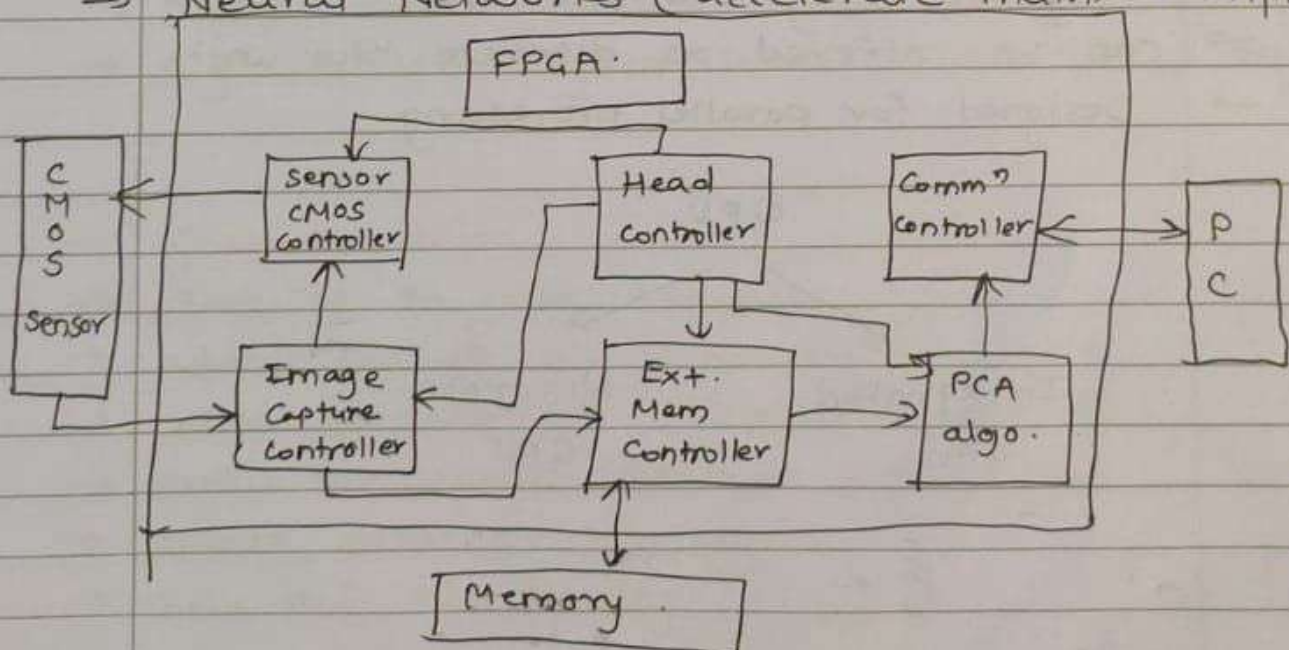 → Neural Networks (accelerate
FPGA.
C
M
O
S
Sensor
Sensor
CMOS
Controller
Head
Controller
Commⁿ
Controller
P
C
Image
Capture
Controller
Ext.
Mem
Controller
PCA
algo.
Memory.